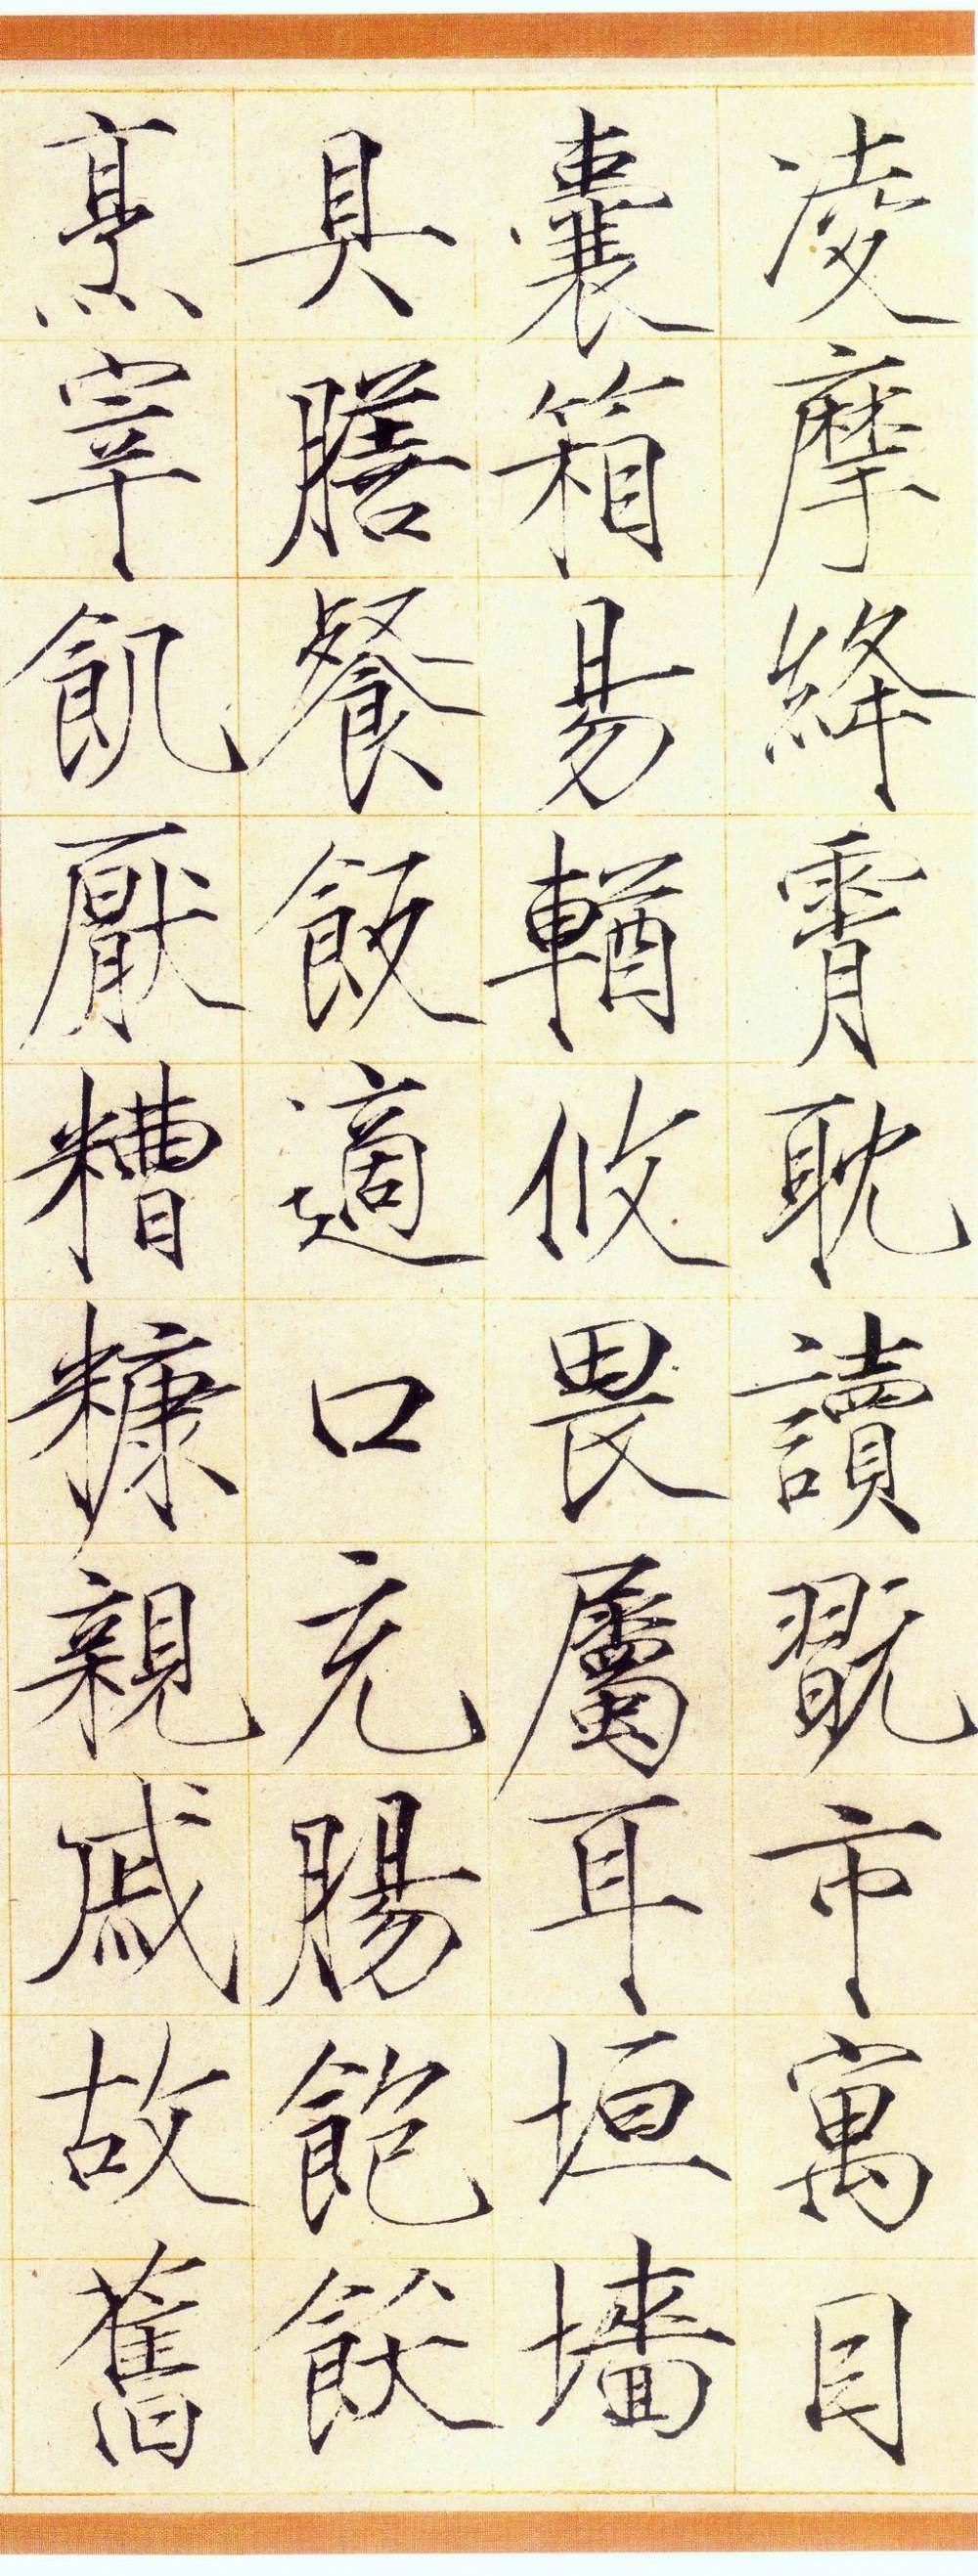 凌摩絳霄耽讀翫市寓目
囊箱易輶攸畏屬耳垣墻
具膳餐飯適口充腸飽飫
烹宰飢厭糟糠親戚故舊